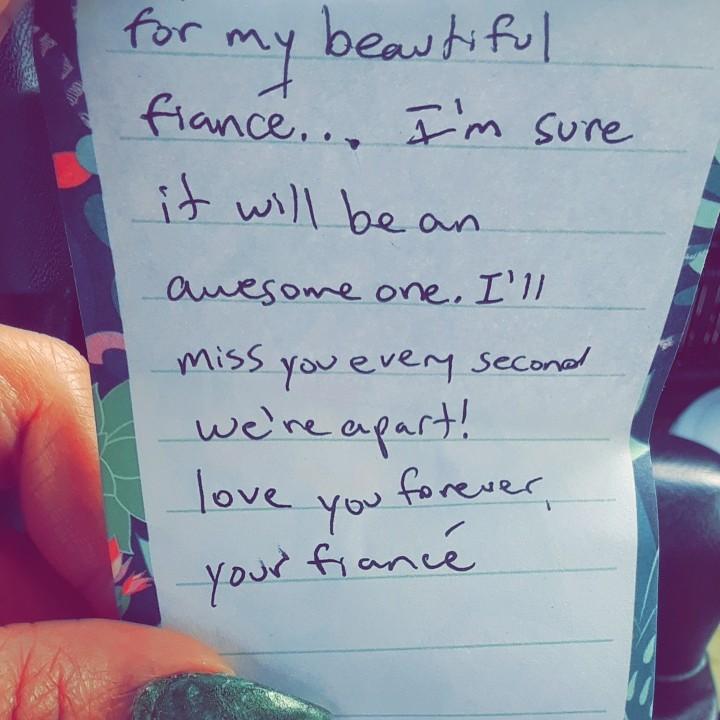 for my beautiful
fiancé... I'm sure
it will be an
awesome one. I'll
miss you every second
we're apart!
love you forever,
your fiancé